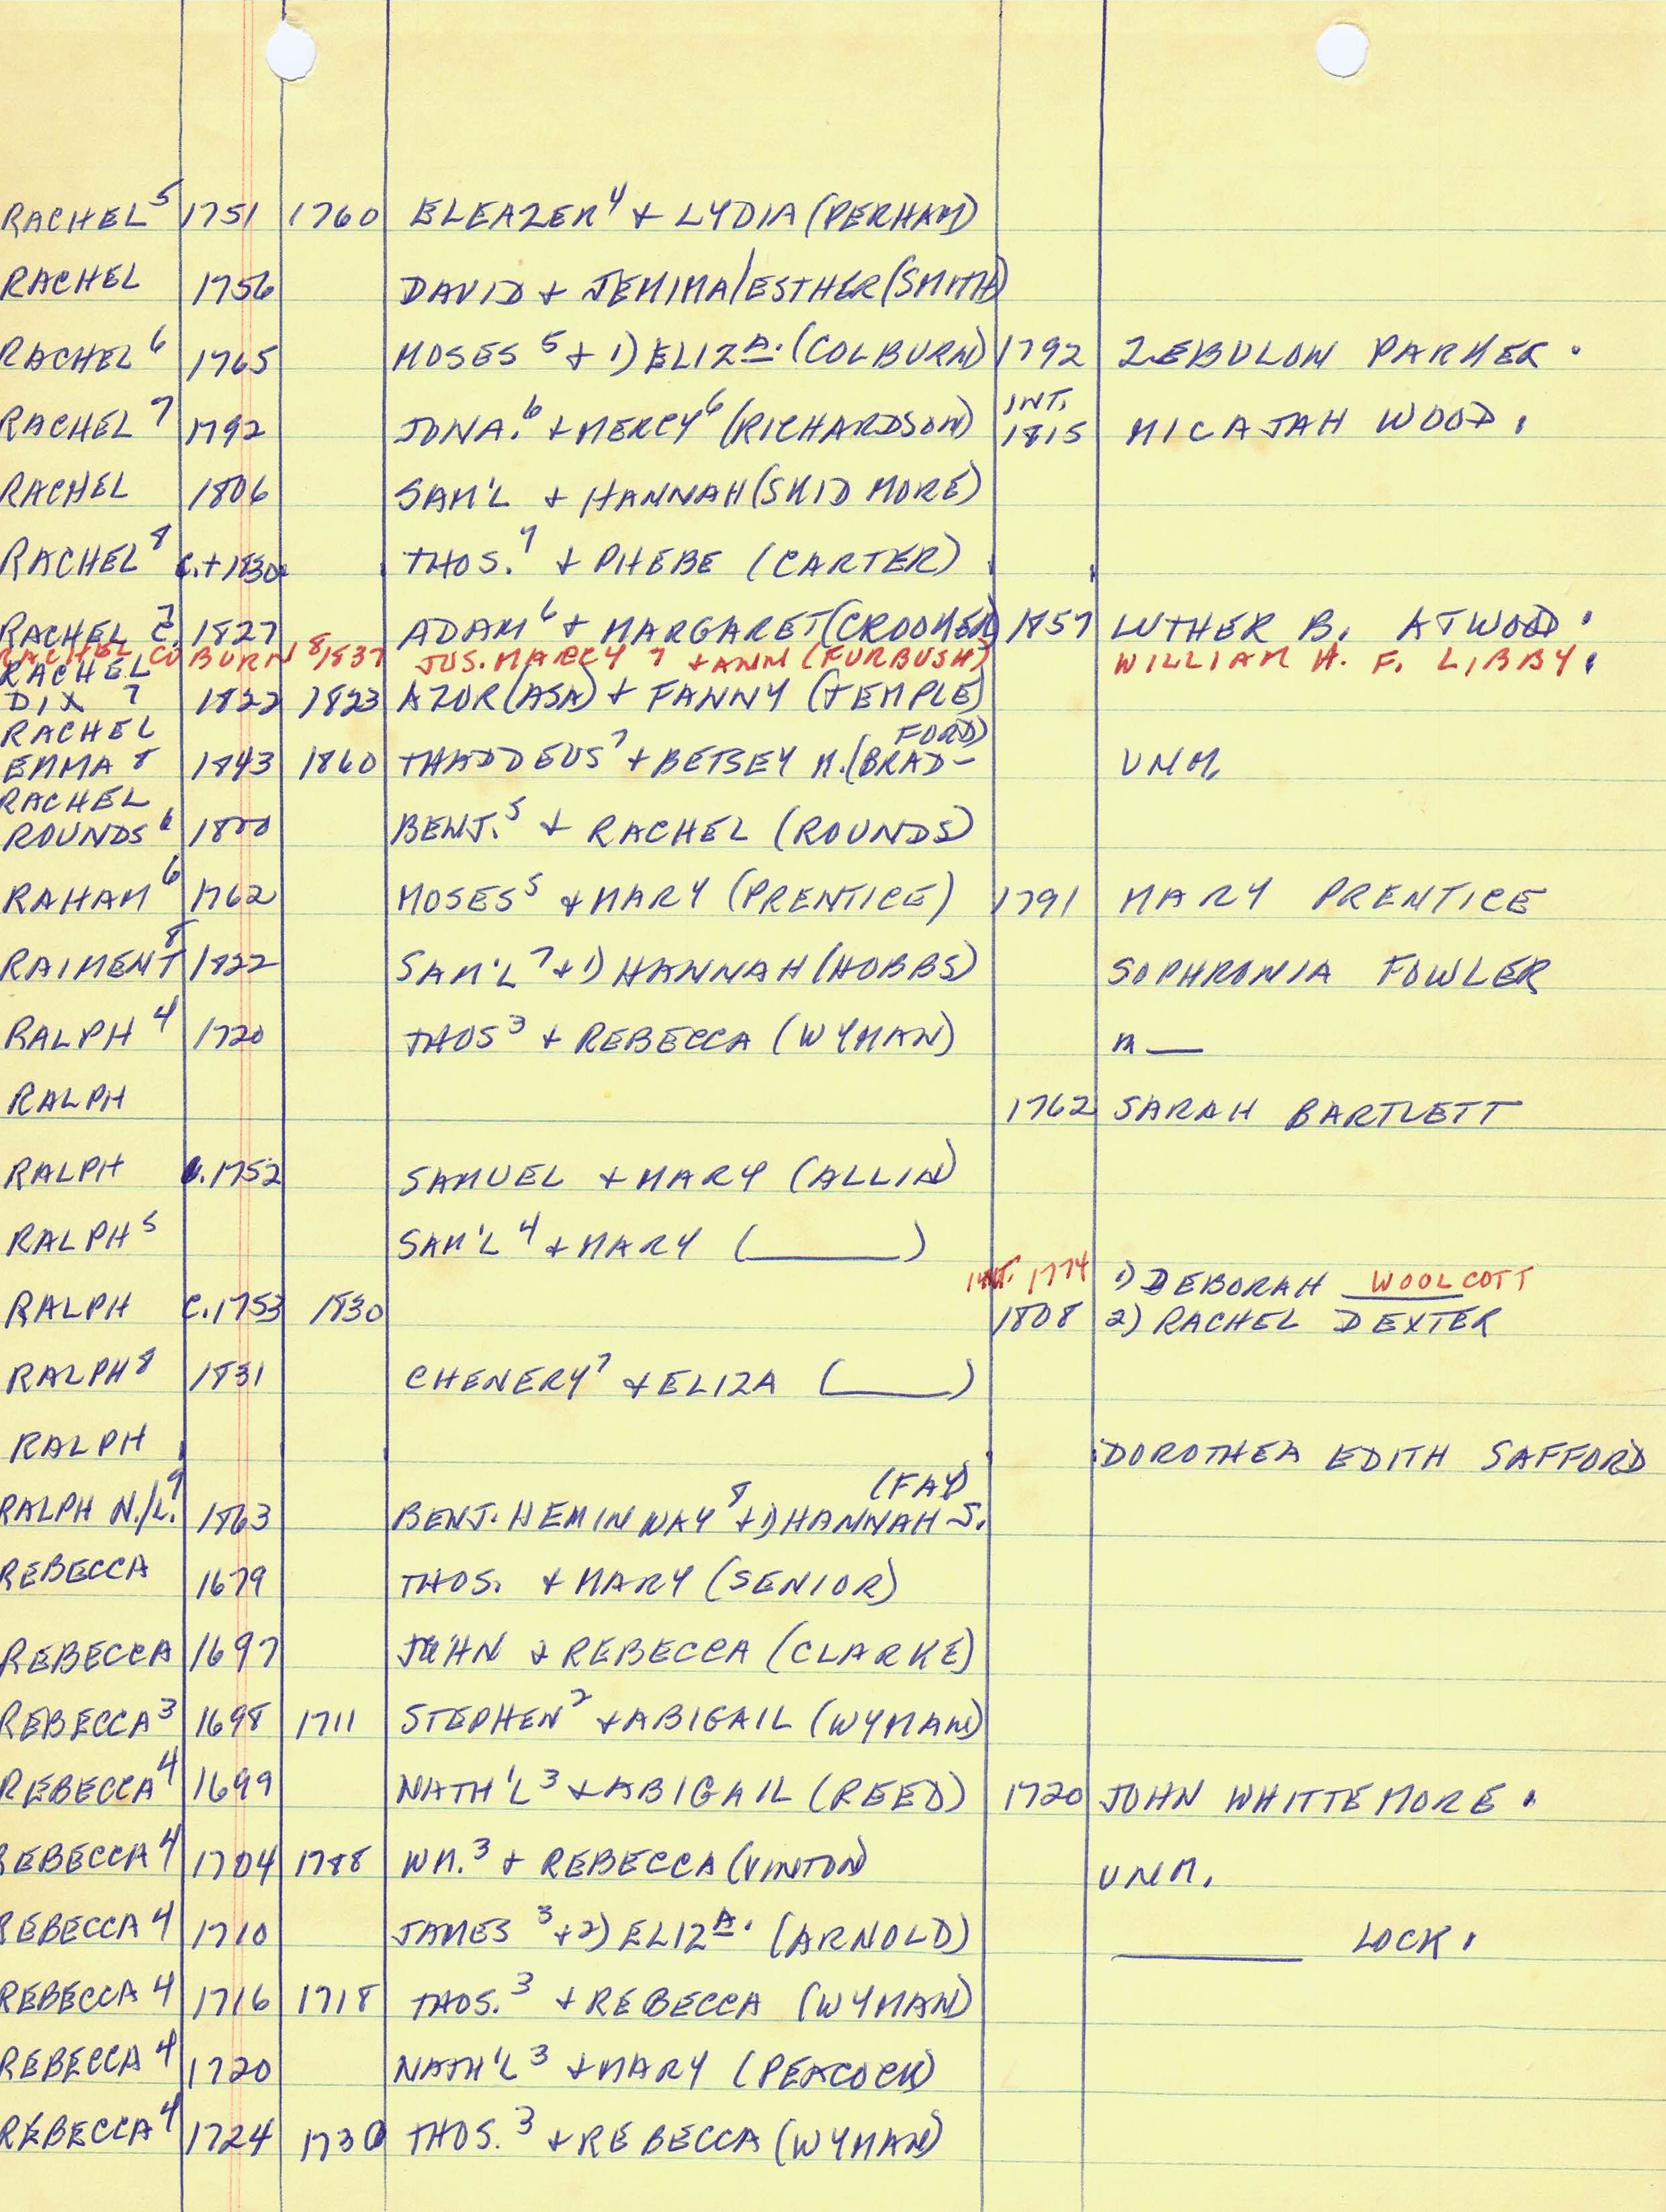 RACHEL⁵ 1751 1760 ELEAZER⁴ + LYDIA (PERHAM)
RACHEL 1756 DAVID + JEMIMA/ESTHER (SMITH)
RACHEL⁶ 1765 MOSES⁵ + 1) ELIZA. (COLBURN) 1792 ZEBULON PARKER.
RACHEL⁷ 1792 JONA.⁶ + MERCY⁶ (RICHARDSON) INT. 1815 MICAJAH WOOD.
RACHEL 1806 SAM'L + HANNAH (SKIDMORE)
RACHEL⁸ C.+1830 THOS.⁷ + PHEBE (CARTER)
RACHEL⁷ C. 1827 ADAM⁶ + MARGARET (CROOKER) 1857 LUTHER B. ATWOOD.
RACHEL COBURN⁸ 1837 JOS. MARCY⁷ + ANN (FURBUSH) WILLIAM H. F. LIBBY.
RACHEL
DIX⁷ 1822 1823 AZOR (ASA) + FANNY (TEMPLE)
RACHEL FORD)
EMMA⁸ 1843 1860 THADDEUS⁷ + BETSEY M. (BRAD- UNM.
RACHEL
ROUNDS⁶ 1800 BENJ.⁵ + RACHEL (ROUNDS)
RAHAM⁶ 1762 MOSES⁵ + MARY (PRENTICE) 1791 MARY PRENTICE
RAIMENT⁸ 1822 SAM'L⁷ + 1) HANNAH (HOBBS) SOPHRONIA FOWLER
RALPH⁴ 1720 THOS³ + REBECCA (WYMAN) m ___
RALPH 1762 SARAH BARTLETT
RALPH C.1752 SAMUEL + MARY (ALLIN)
RALPH⁵ SAM'L⁴ + MARY (______)
INT. 1774 1) DEBORAH WOOLCOTT
RALPH C.1753 1830 1808 2) RACHEL DEXTER
RALPH⁸ 1831 CHENERY⁷ + ELIZA (____)
RALPH DOROTHEA EDITH SAFFORD
(FAY)
RALPH N./L.⁹ 1863 BENJ. HEMINWAY⁸ + 1) HANNAH S.
REBECCA 1679 THOS. + MARY (SENIOR)
REBECCA 1697 JOHN + REBECCA (CLARKE)
REBECCA³ 1698 1711 STEPHEN² + ABIGAIL (WYMAN)
REBECCA⁴ 1699 NATH'L³ + ABIGAIL (REED) 1720 JOHN WHITTEMORE.
REBECCA⁴ 1704 1788 WM.³ + REBECCA (VINTON) UNM.
REBECCA⁴ 1710 JAMES³ + 2) ELIZA. (ARNOLD) ______ LOCK.
REBECCA⁴ 1716 1718 THOS.³ + REBECCA (WYMAN)
REBECCA⁴ 1720 NATH'L³ + MARY (PEACOCK)
REBECCA⁴ 1724 1730 THOS.³ + REBECCA (WYMAN)